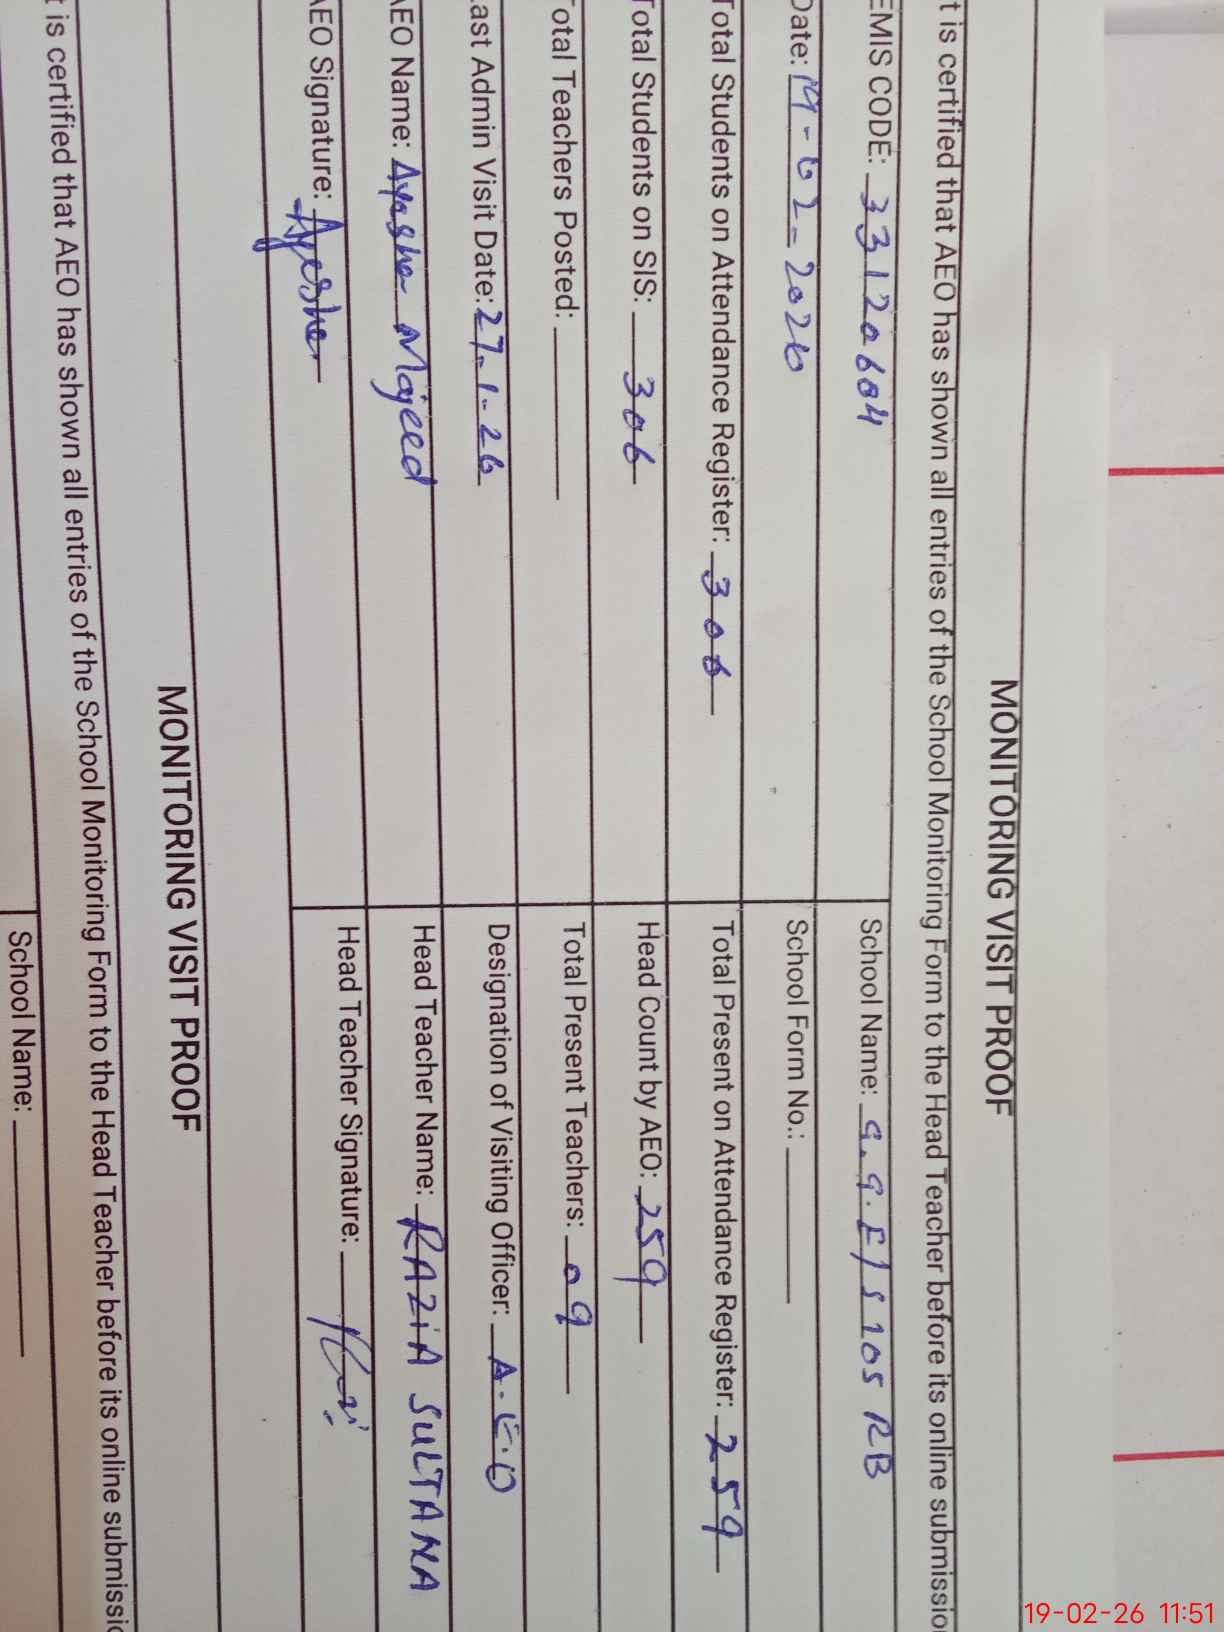 MONITORING VISIT PROOF
t is certified that AEO has shown all entries of the School Monitoring Form to the Head Teacher before its online submissio
EMIS CODE: 33120604 School Name: G.G.E/S 105 RB
Date: 19-02-2026 School Form No.:
Total Students on Attendance Register: 306 Total Present on Attendance Register: 259
Total Students on SIS: 306 Head Count by AEO: 259
Total Teachers Posted: Total Present Teachers: 09
Last Admin Visit Date: 27-1-26 Designation of Visiting Officer: A.E.O
AEO Name: Ayesha Majeed Head Teacher Name: RAZiA SULTANA
AEO Signature: Ayesha Head Teacher Signature:
MONITORING VISIT PROOF
t is certified that AEO has shown all entries of the School Monitoring Form to the Head Teacher before its online submissio
School Name:
19-02-26 11:51